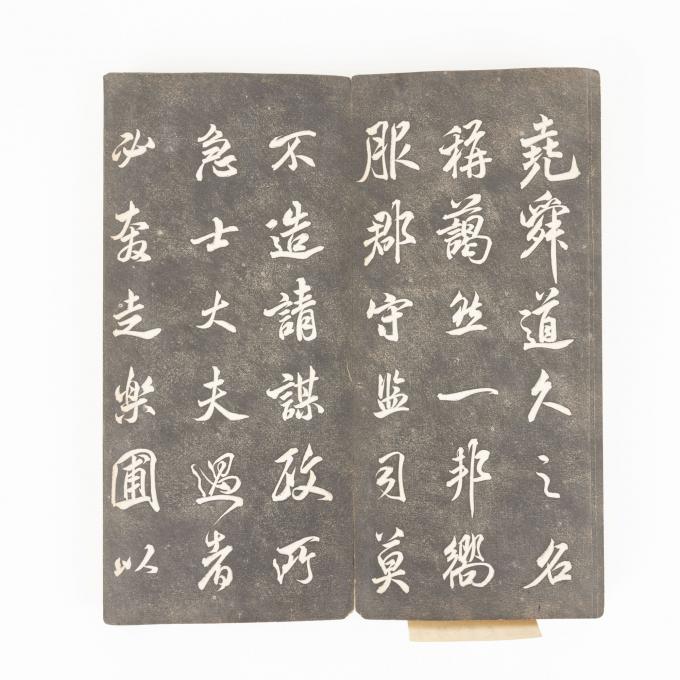 堯舜道久之名
稱藹然一邦嚮
服郡守監司莫
不造請謀政所
急士大夫過者
必奔走樂圃以